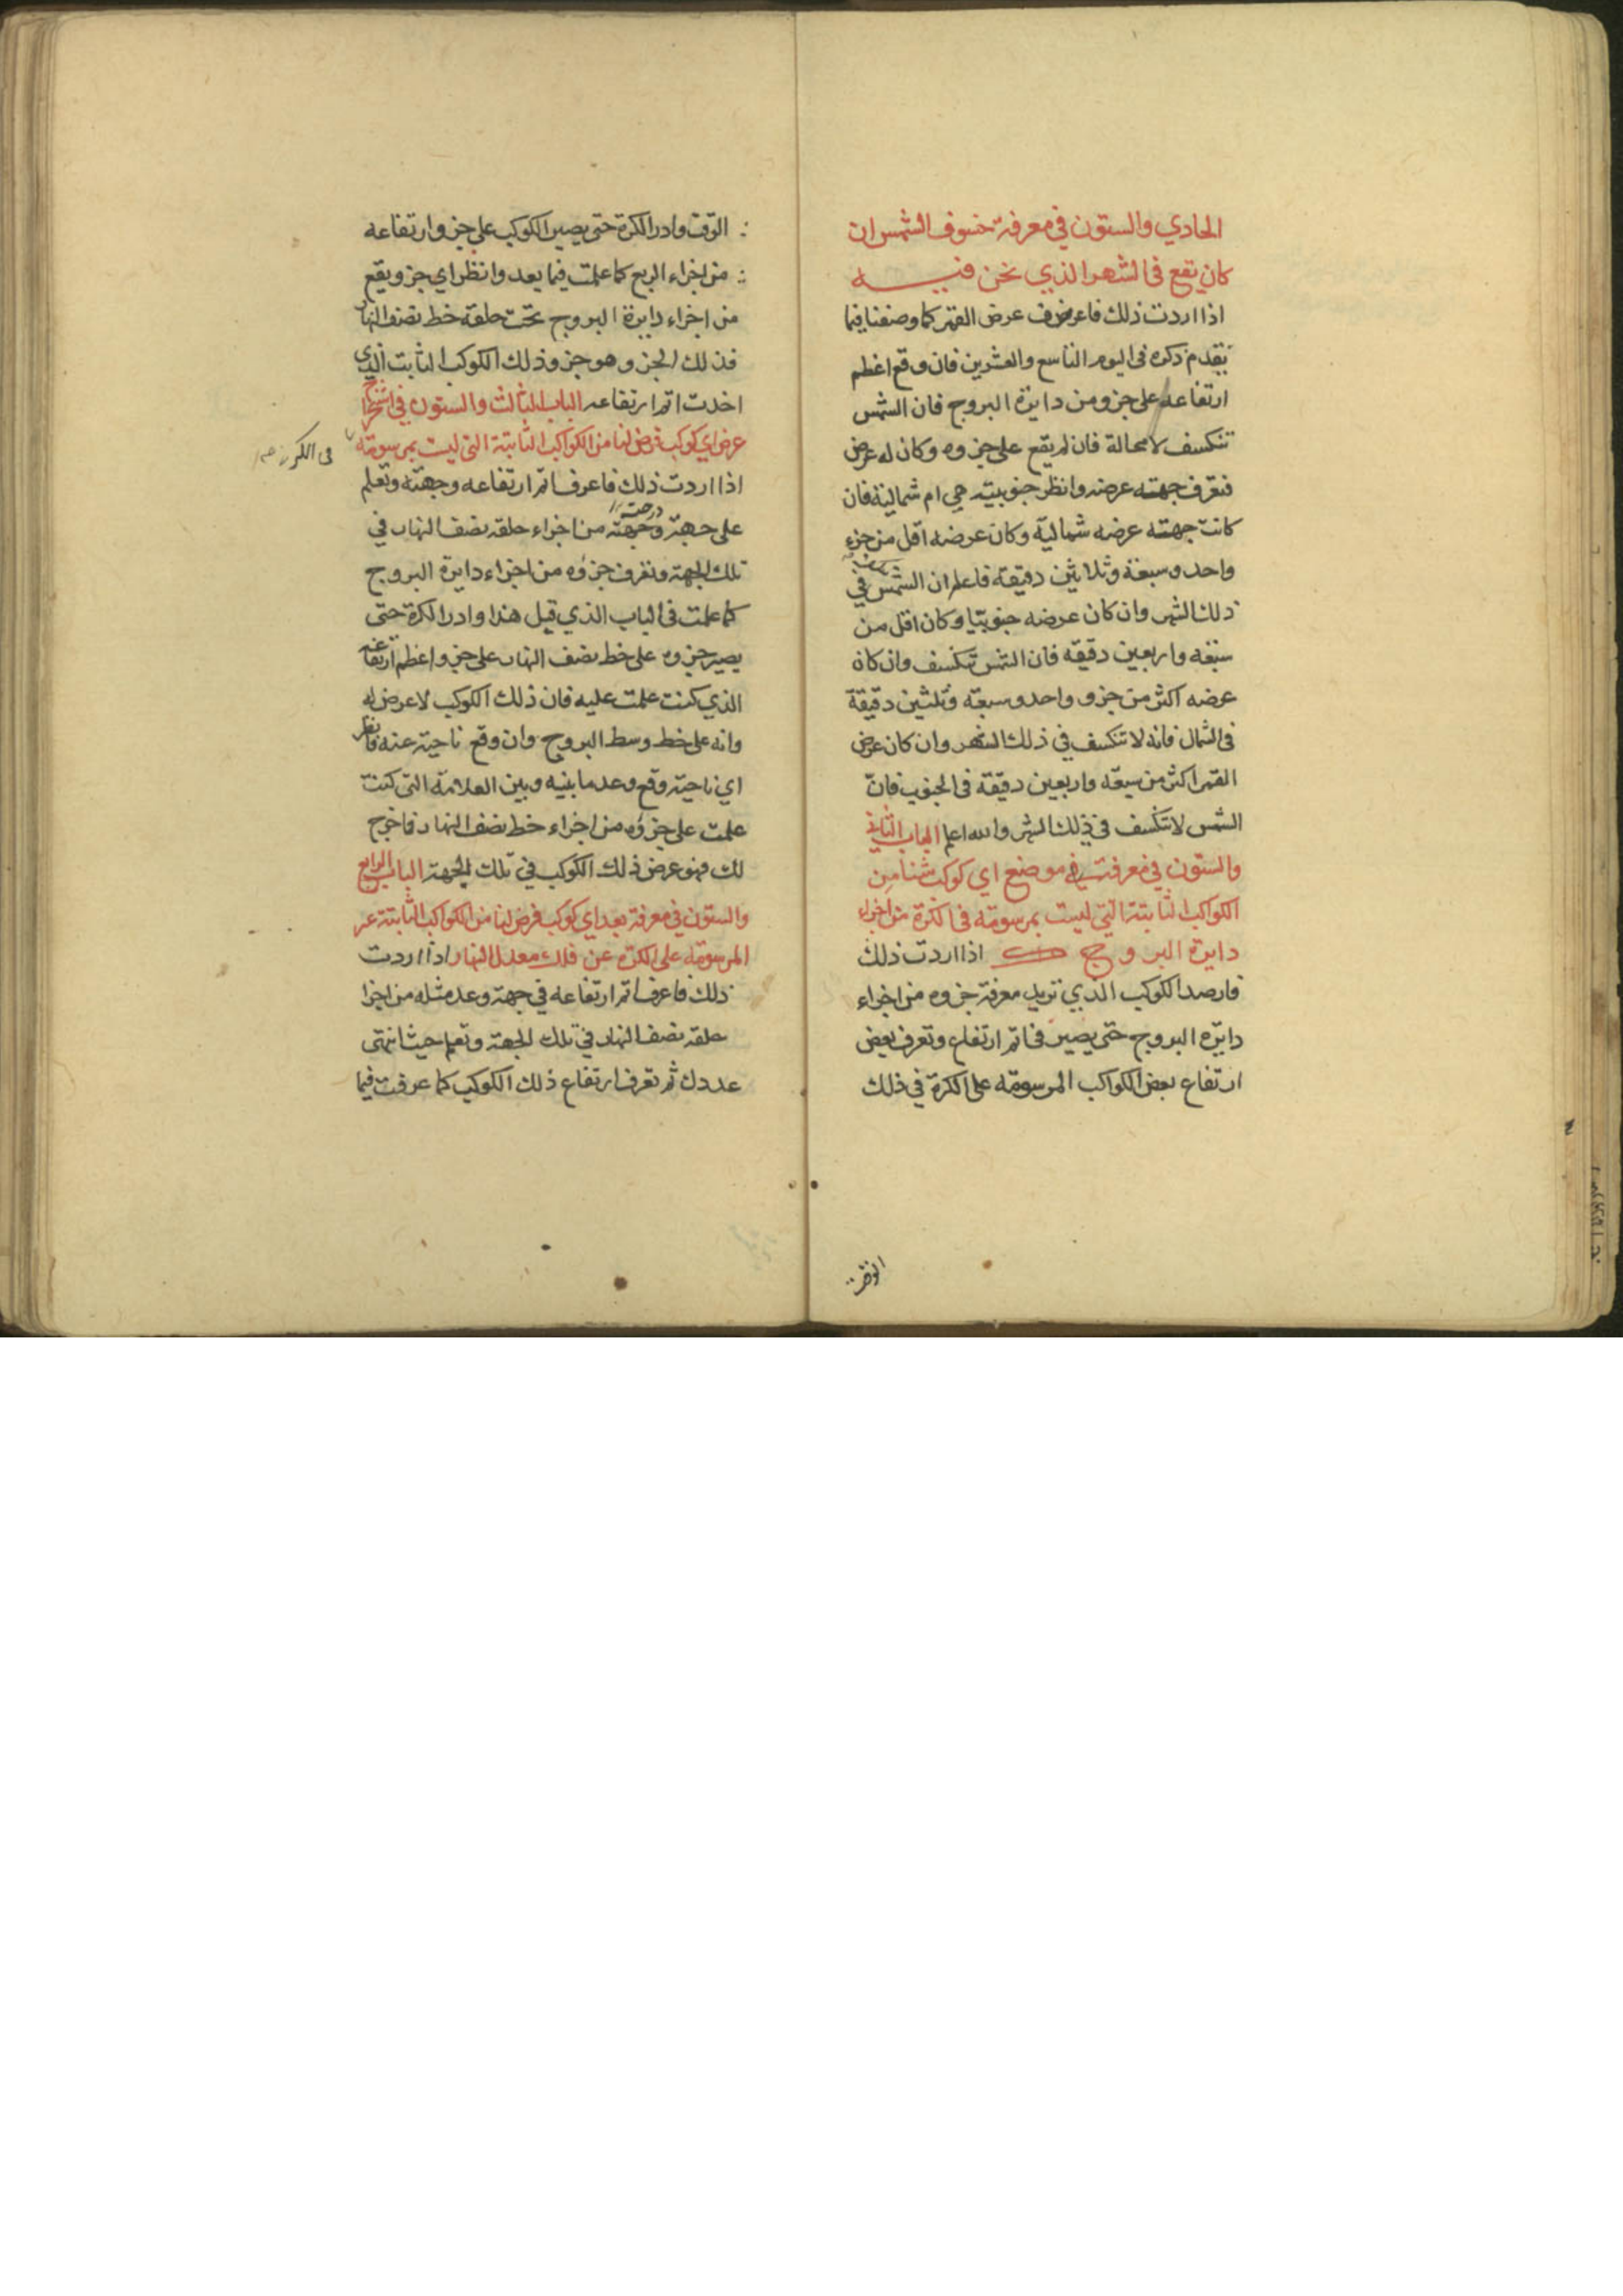 الحادي والستون في معرفة خسوف الشمس ان
كان يقع في الشهر الذي نحن فيه
اذا اردت ذلك فاعرف عرض القمر كما وصفنا فيما
تقدم ذكره في اليوم التاسع والعشرين فان وقع اعظم
ارتفاعه على جزو من دايرة البروج فان الشمس
تنكسف لا محالة فان لم يقع على جزوه وكان له عرض
فتعرف جهته عرضه وانظر جنوبيته هي ام شمالية فان
كانت جهته عرضه شمالية وكان عرضه اقل من جزء
واحد وسبعة وثلاثين دقيقة فاعلم ان الشمس في
ذلك الشهر وان كان عرضه جنوبيا وكان اقل من
سبعه واربعين دقيقه فان الشمس تنكسف وان كان
عرضه اكثر من جزو واحد وسبعة وثلثين دقيقة
في الشمال فانه لا تنكسف في ذلك الشهر وان كان عرض
القمر اكثر من سبعه واربعين دقيقة في الجنوب فان
الشمس لا تنكسف في ذلك الشهر والله اعلم الباب الثاني
والستون في معرفة موضع اي كوكب شئنا من
الكواكب الثابتة التي ليست بمرسومه في الكرة من اجزاء
دايرة البروج اذا اردت ذلك
فارصد الكوكب الذي تريد معرفة جزوه من اجزاء
دايره البروج حتى يصير في اتم ارتفاع وتعرف بعض
ارتفاع بعض الكواكب المرسومه على الكرة في ذلك
الوقت
الوقت وادر الكرة حتى يصير الكوكب على جزو ارتفاعه
من اجزاء الربع كما علمت فيما بعد وانظر اي جزو يقع
من اجزاء دايرة البروج تحت حلقة خط نصف النهار
فذلك الجزو هو جزو ذلك الكوكب الثابت الذي
اخدت اتم ارتفاعه الباب الثالث والستون في استخراج
عرض اي كوكب فرض لنا من الكواكب الثابتة التي ليست بمرسومه
في الكره صح
اذا اردت ذلك فاعرف اتم ارتفاعه وجهته وتعلم
على جهته وجهته من اجزاء حلقه نصف النهار في
درجته
تلك الجهة وتعرف جزؤه من اجزاء دايرة البروج
كما علمت في الباب الذي قبل هذا وادر الكرة حتى
يصير جزوه على خط نصف النهار على جزو اعظم ارتفاعه
الذي كنت علمت عليه فان ذلك الكوكب لا عرض له
وانه على خط وسط البروج وان وقع ناحية عنه فانظر
اي ناحية وقع وعد ما بينه وبين العلامة التي كنت
علمت على جزؤه من اجزاء خط نصف النهار فما خرج
لك فهو عرض ذلك الكوكب في تلك الجهة الباب الرابع
والستون في معرفة بعد اي كوكب فرض لنا من الكواكب الثابتة غير
المرسومة على الكره عن فلك معدل النهار اذا اردت
ذلك فاعرف اتم ارتفاعه في جهته وعد مثله من اجزا
حلقه نصف النهار في تلك الجهة وتعلم حيث انتهى
عددك ثم تعرف ارتفاع ذلك الكوكب كما عرفت فيما